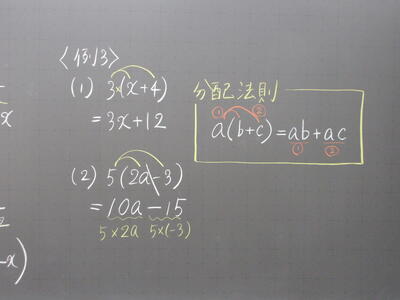 〈例3〉
(1) 3×(x+4)
=3x+12
(2) 5(2a-3)
=10a-15
5×2a 5×(-3)
分配法則
① ②
a(b+c)=ab+ac
① ②
x
-x)